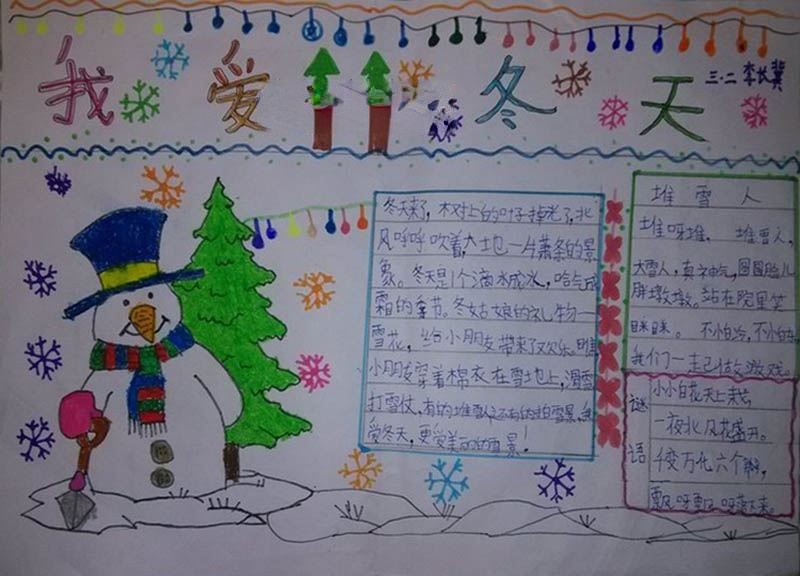 我爱冬天
三.二 李长冀
冬天来了,树上的叶子掉光了,北
风呼呼吹着,大地一片萧条的景
象。冬天是个滴水成冰,哈气成
霜的季节。冬姑娘的礼物一
雪花,给小朋友带来了欢乐。瞧
小朋友穿着棉衣在雪地上,滑雪
打雪仗,有的堆雪人还有的拍雪景,我
爱冬天,更爱美丽的雪景!
堆雪人
堆呀堆,堆雪人,
大雪人,真神气,圆圆脸儿
胖墩墩。站在院里笑
眯眯。不怕冷,不怕冻
我们一起做游戏。
谜语
小小白花天上栽,
一夜北风花盛开。
千变万化六个瓣,
飘呀飘呀落下来。